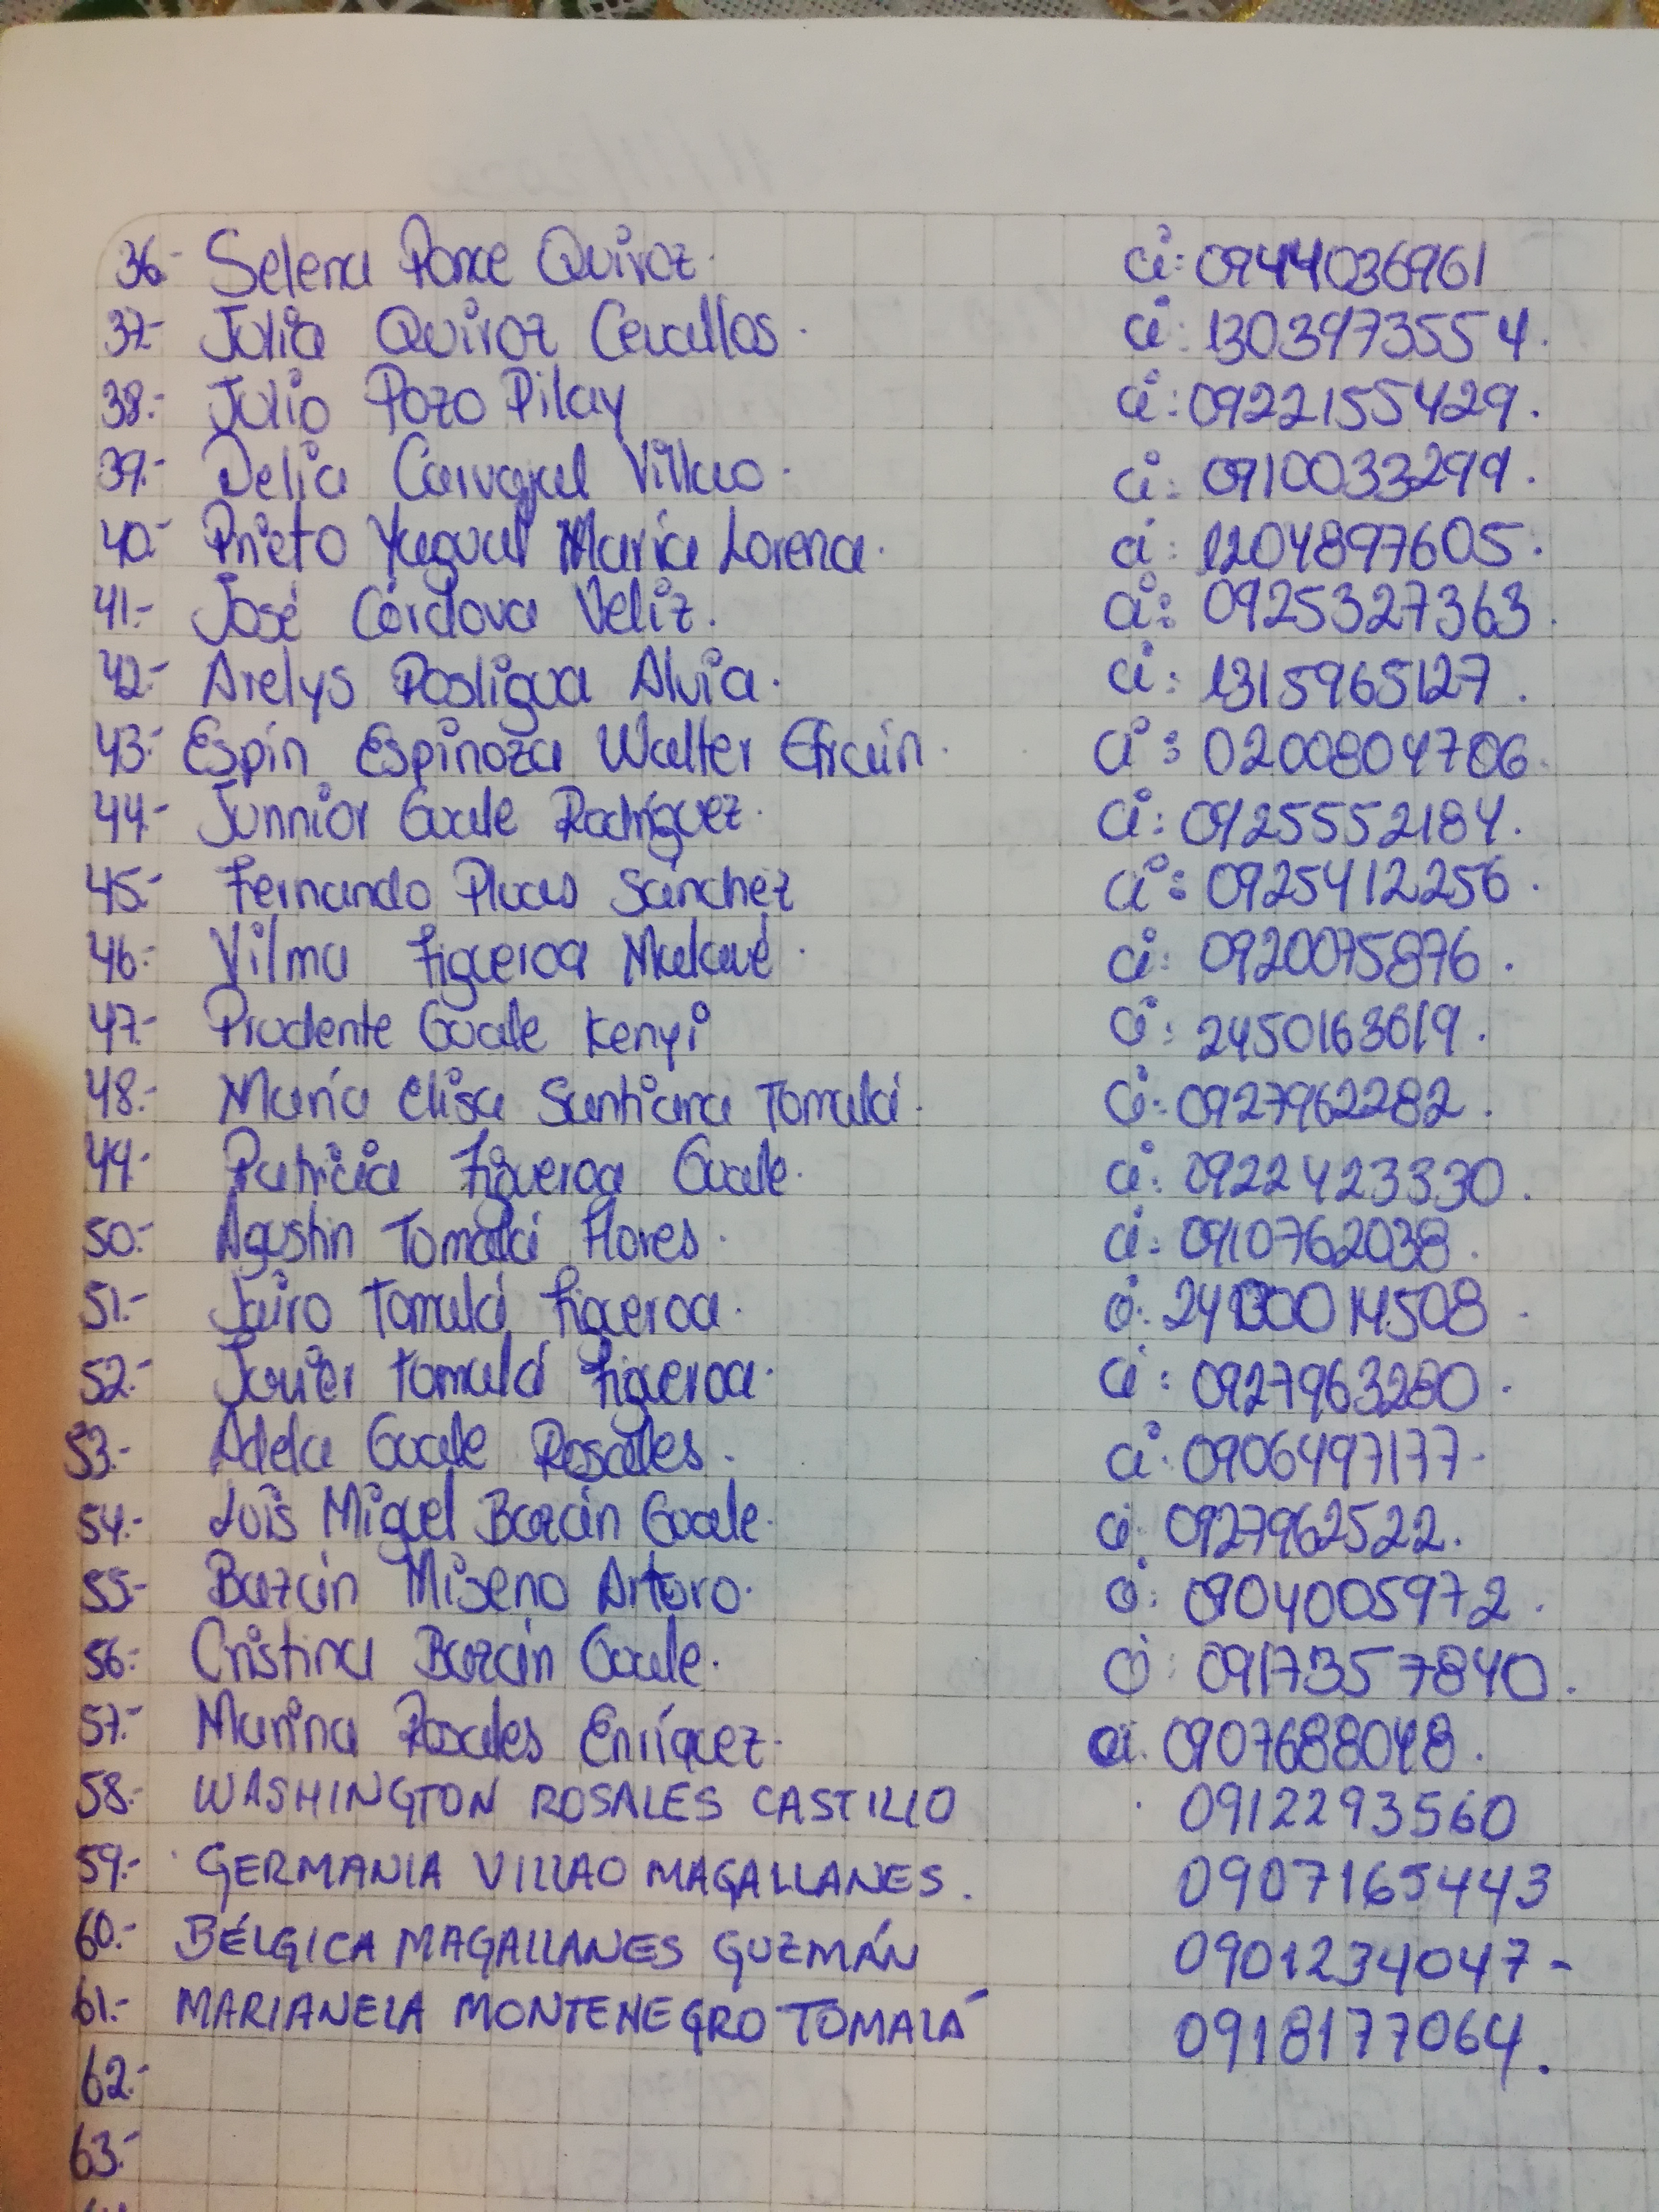 36.- Selena Ponce Quiroz. ci: 0944036961
37.- Julia Quiroz Cevallos. ci: 1303973554.
38.- Julio Pozo Pilay ci: 0922155429.
39.- Delia Carvajal Villao. ci: 0910033299.
40.- Prieto Yagual María Lorena. ci: 1204897605.
41.- José Córdova Veliz. ci: 0925327363.
42.- Arelys Posligua Alvia. ci: 1315965127.
43.- Espín Espinoza Walter Efraín. ci: 0200804706.
44.- Junnior Guale Rodríguez. ci: 0925552184.
45.- Fernando Pluas Sánchez ci: 0925412256.
46.- Vilma Figueroa Malavé. ci: 0920075876.
47.- Prudente Guale Kenyi ci: 2450163619.
48.- María Elisa Santiana Tomalá. ci: 0927962282.
49.- Patricia Figueroa Guale. ci: 0922423330.
50.- Agustin Tomalá Flores. ci: 0910762038.
51.- Jairo Tomalá Figueroa. ci:
52.- Javier Tomalá Figueroa. ci: 0927963280.
53.- Adela Guale Rosales. ci: 0906497177.
54.- Luis Miguel Bazán Guale. ci: 0927962522.
55.- Bazán Miseno Arturo. ci: 0904005972.
56.- Cristina Bazán Guale. ci: 0917357840.
57.- Marina Rosales Enríquez. ci: 0907688048.
58.- WASHINGTON ROSALES CASTILLO 0912293560
59.- GERMANIA VILLAO MAGALLANES. 0907165443
60.- BÉLGICA MAGALLANES GUZMÁN 0901234047-
61.- MARIANELA MONTENEGRO TOMALÁ 0918177064.
62.-
63.-